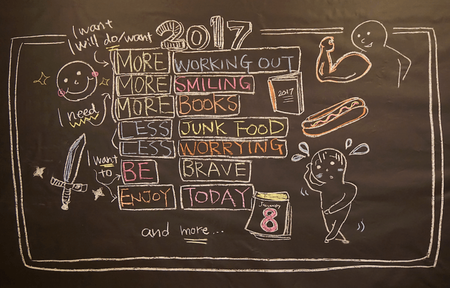 I want
I will do/want
2017
MORE WORKING OUT
MORE SMILING
MORE BOOKS
2017
I need
LESS JUNK FOOD
LESS WORRYING
I want to
BE BRAVE
ENJOY TODAY
January
8
and more...